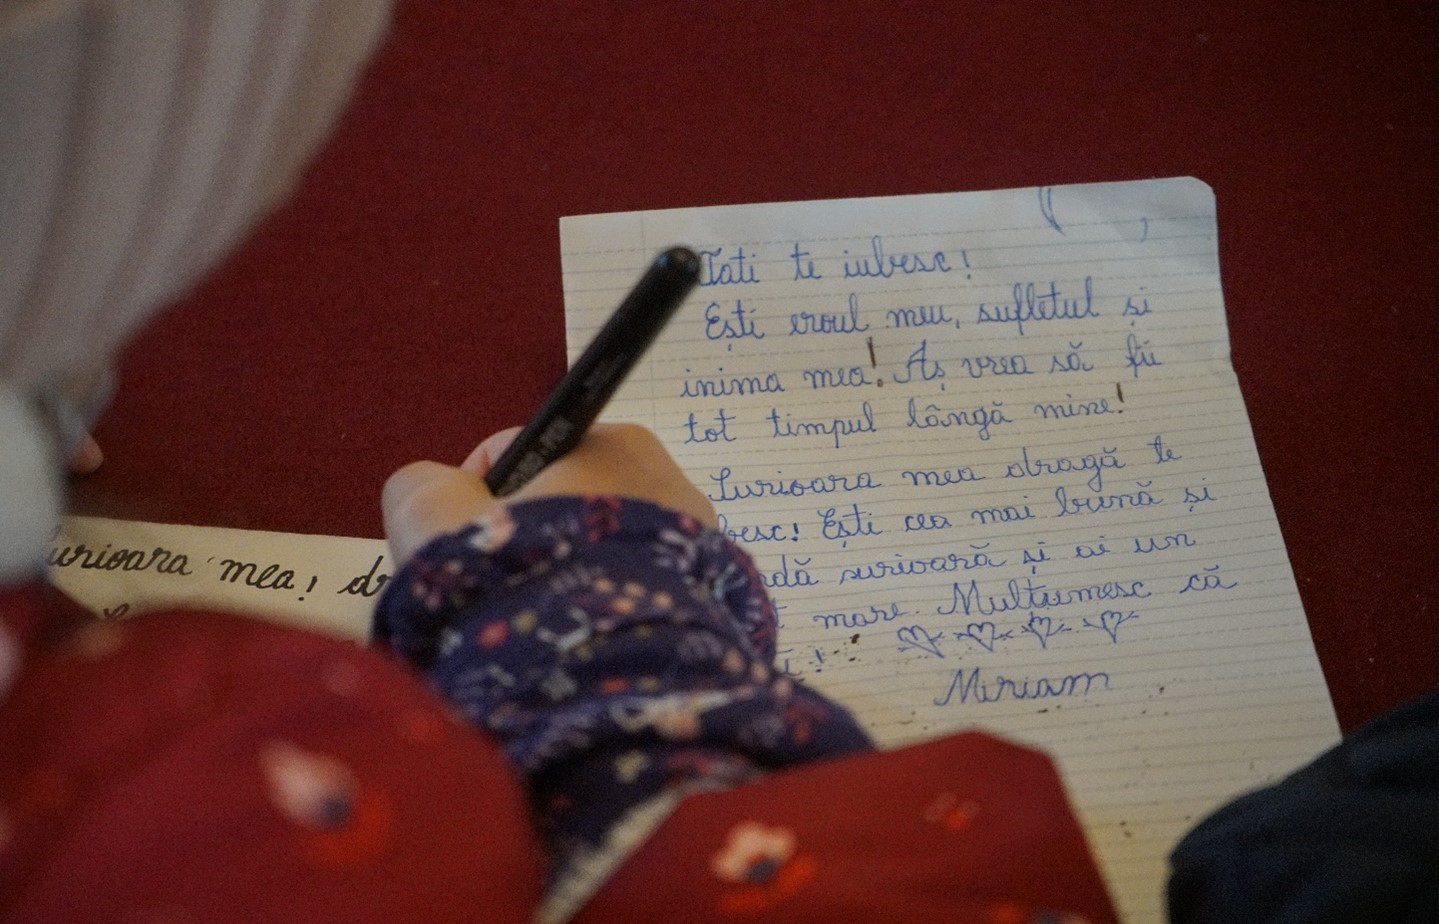 Tati te iubesc!
Ești eroul meu, sufletul și
inima mea! Aș vrea să fii
tot timpul lângă mine!
Surioara mea dragă te
besc! Ești cea mai bună și
dă surioară și ai un
mare. Mulțumesc că
Miriam
urioara mea! dr